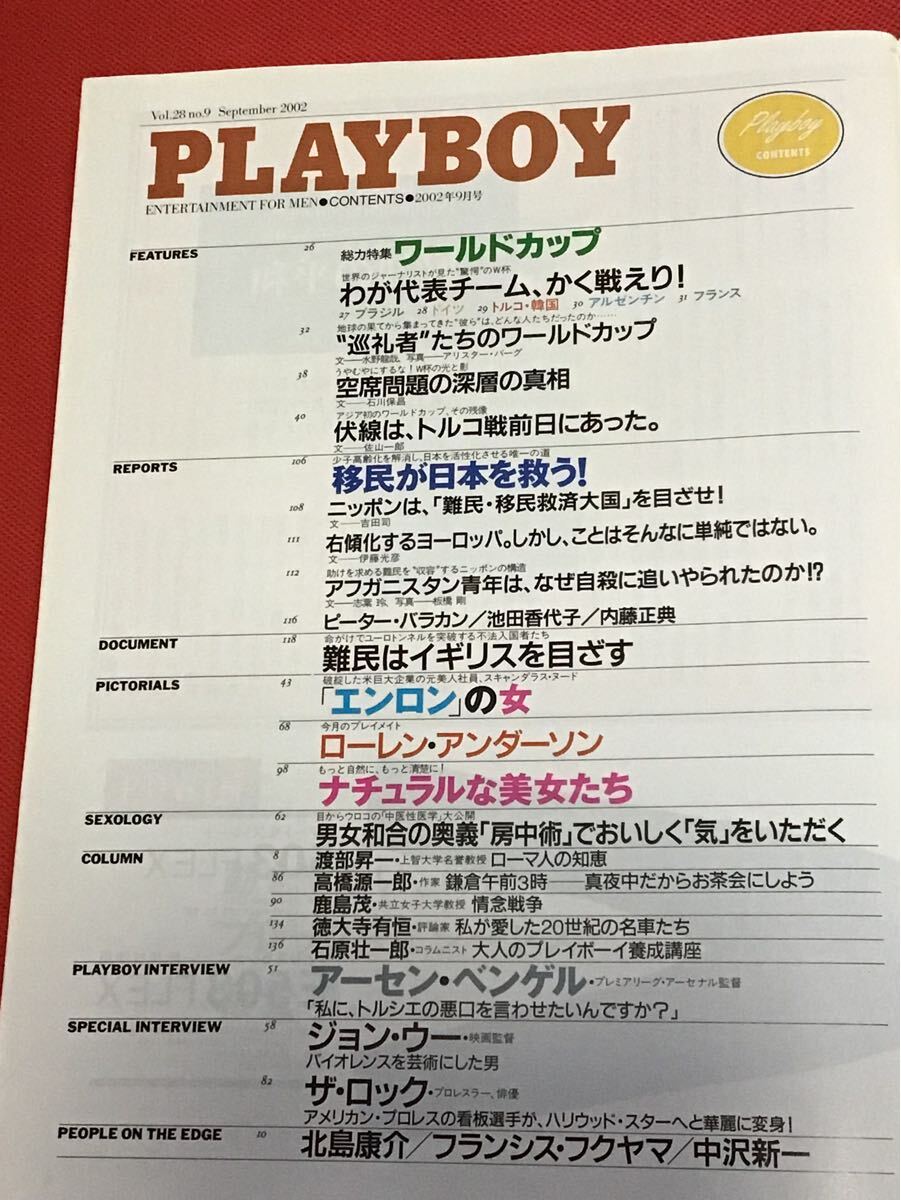 Vol.28 no.9 September 2002
PLAYBOY
Playboy
CONTENTS
ENTERTAINMENT FOR MEN●CONTENTS●2002年9月号
FEATURES
26 総力特集 ワールドカップ
世界のジャーナリストが見た"驚愕"のW杯
わが代表チーム、かく戦えり!
27 ブラジル 28 ドイツ 29 トルコ・韓国 30 アルゼンチン 31 フランス
32 地球の果てから集まってきた"彼らは、どんな人たちだったのか……
"巡礼者"たちのワールドカップ
文——水野龍哉、写真——アリスター・バーグ
38 うやむやにするな!W杯の光と影
空席問題の深層の真相
文——石川保昌
40 アジア初のワールドカップ、その残像
伏線は、トルコ戦前日にあった。
文——佐山一郎
REPORTS
106 少子高齢化を解消し、日本を活性化させる唯一の道
移民が日本を救う!
108 ニッポンは、「難民・移民救済大国」を目ざせ!
文——吉田司
111 右傾化するヨーロッパ。しかし、ことはそんなに単純ではない。
文——伊藤光彦
112 助けを求める難民を"収容"するニッポンの構造
アフガニスタン青年は、なぜ自殺に追いやられたのか!?
文——志葉 玲、写真——板橋 剛
116 ピーター・バラカン/池田香代子/内藤正典
DOCUMENT
118 命がけでユーロトンネルを突破する不法入国者たち
難民はイギリスを目ざす
PICTORIALS
43 破綻した米巨大企業の元美人社員、スキャンダラス・ヌード
「エンロン」の女
68 今月のプレイメイト
ローレン・アンダーソン
98 もっと自然に、もっと清楚に!
ナチュラルな美女たち
SEXOLOGY
62 目からウロコの「中医性医学」大公開
男女和合の奥義「房中術」でおいしく「気」をいただく
COLUMN
8 渡部昇一・上智大学名誉教授 ローマ人の知恵
86 高橋源一郎・作家 鎌倉午前3時——真夜中だからお茶会にしよう
90 鹿島茂・共立女子大学教授 情念戦争
134 徳大寺有恒・評論家 私が愛した20世紀の名車たち
136 石原壮一郎・コラムニスト 大人のプレイボーイ養成講座
PLAYBOY INTERVIEW
51 アーセン・ベンゲル・プレミアリーグ・アーセナル監督
「私に、トルシエの悪口を言わせたいんですか?」
SPECIAL INTERVIEW
58 ジョン・ウー・映画監督
バイオレンスを芸術にした男
82 ザ・ロック・プロレスラー、俳優
アメリカン・プロレスの看板選手が、ハリウッド・スターへと華麗に変身!
PEOPLE ON THE EDGE
10 北島康介/フランシス・フクヤマ/中沢新一